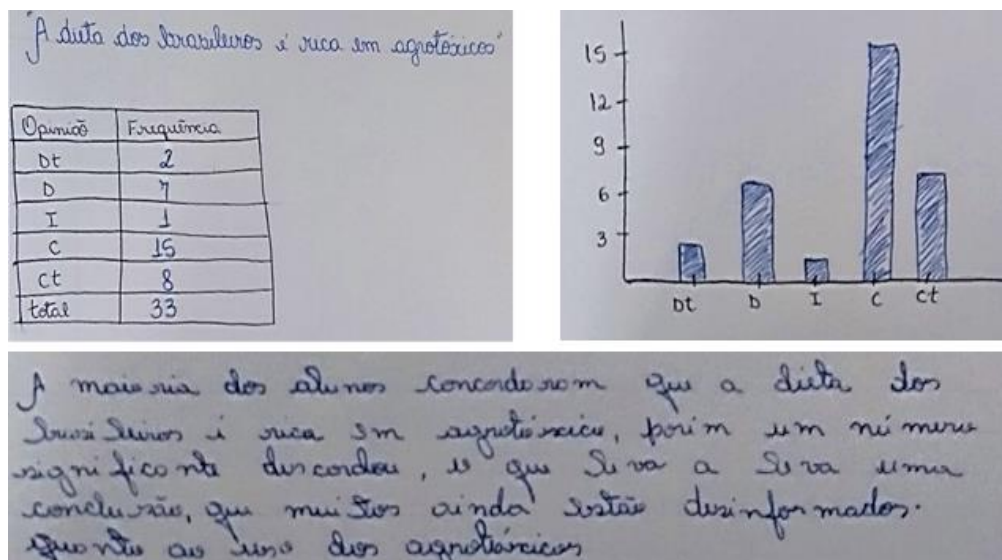 "A dieta dos brasileiros é rica em agrotóxicos"
Opinião Frequência
Dt 2
D 7
I 1
C 15
Ct 8
total 33
15
12
9
6
3
Dt D I C Ct
A maioria dos alunos concordaram que a dieta dos
brasileiros é rica em agrotóxico, porém um número
significante discordou, o que leva a leva uma
conclusão, que muitos ainda estão desinformados.
quanto ao uso dos agrotóxicos